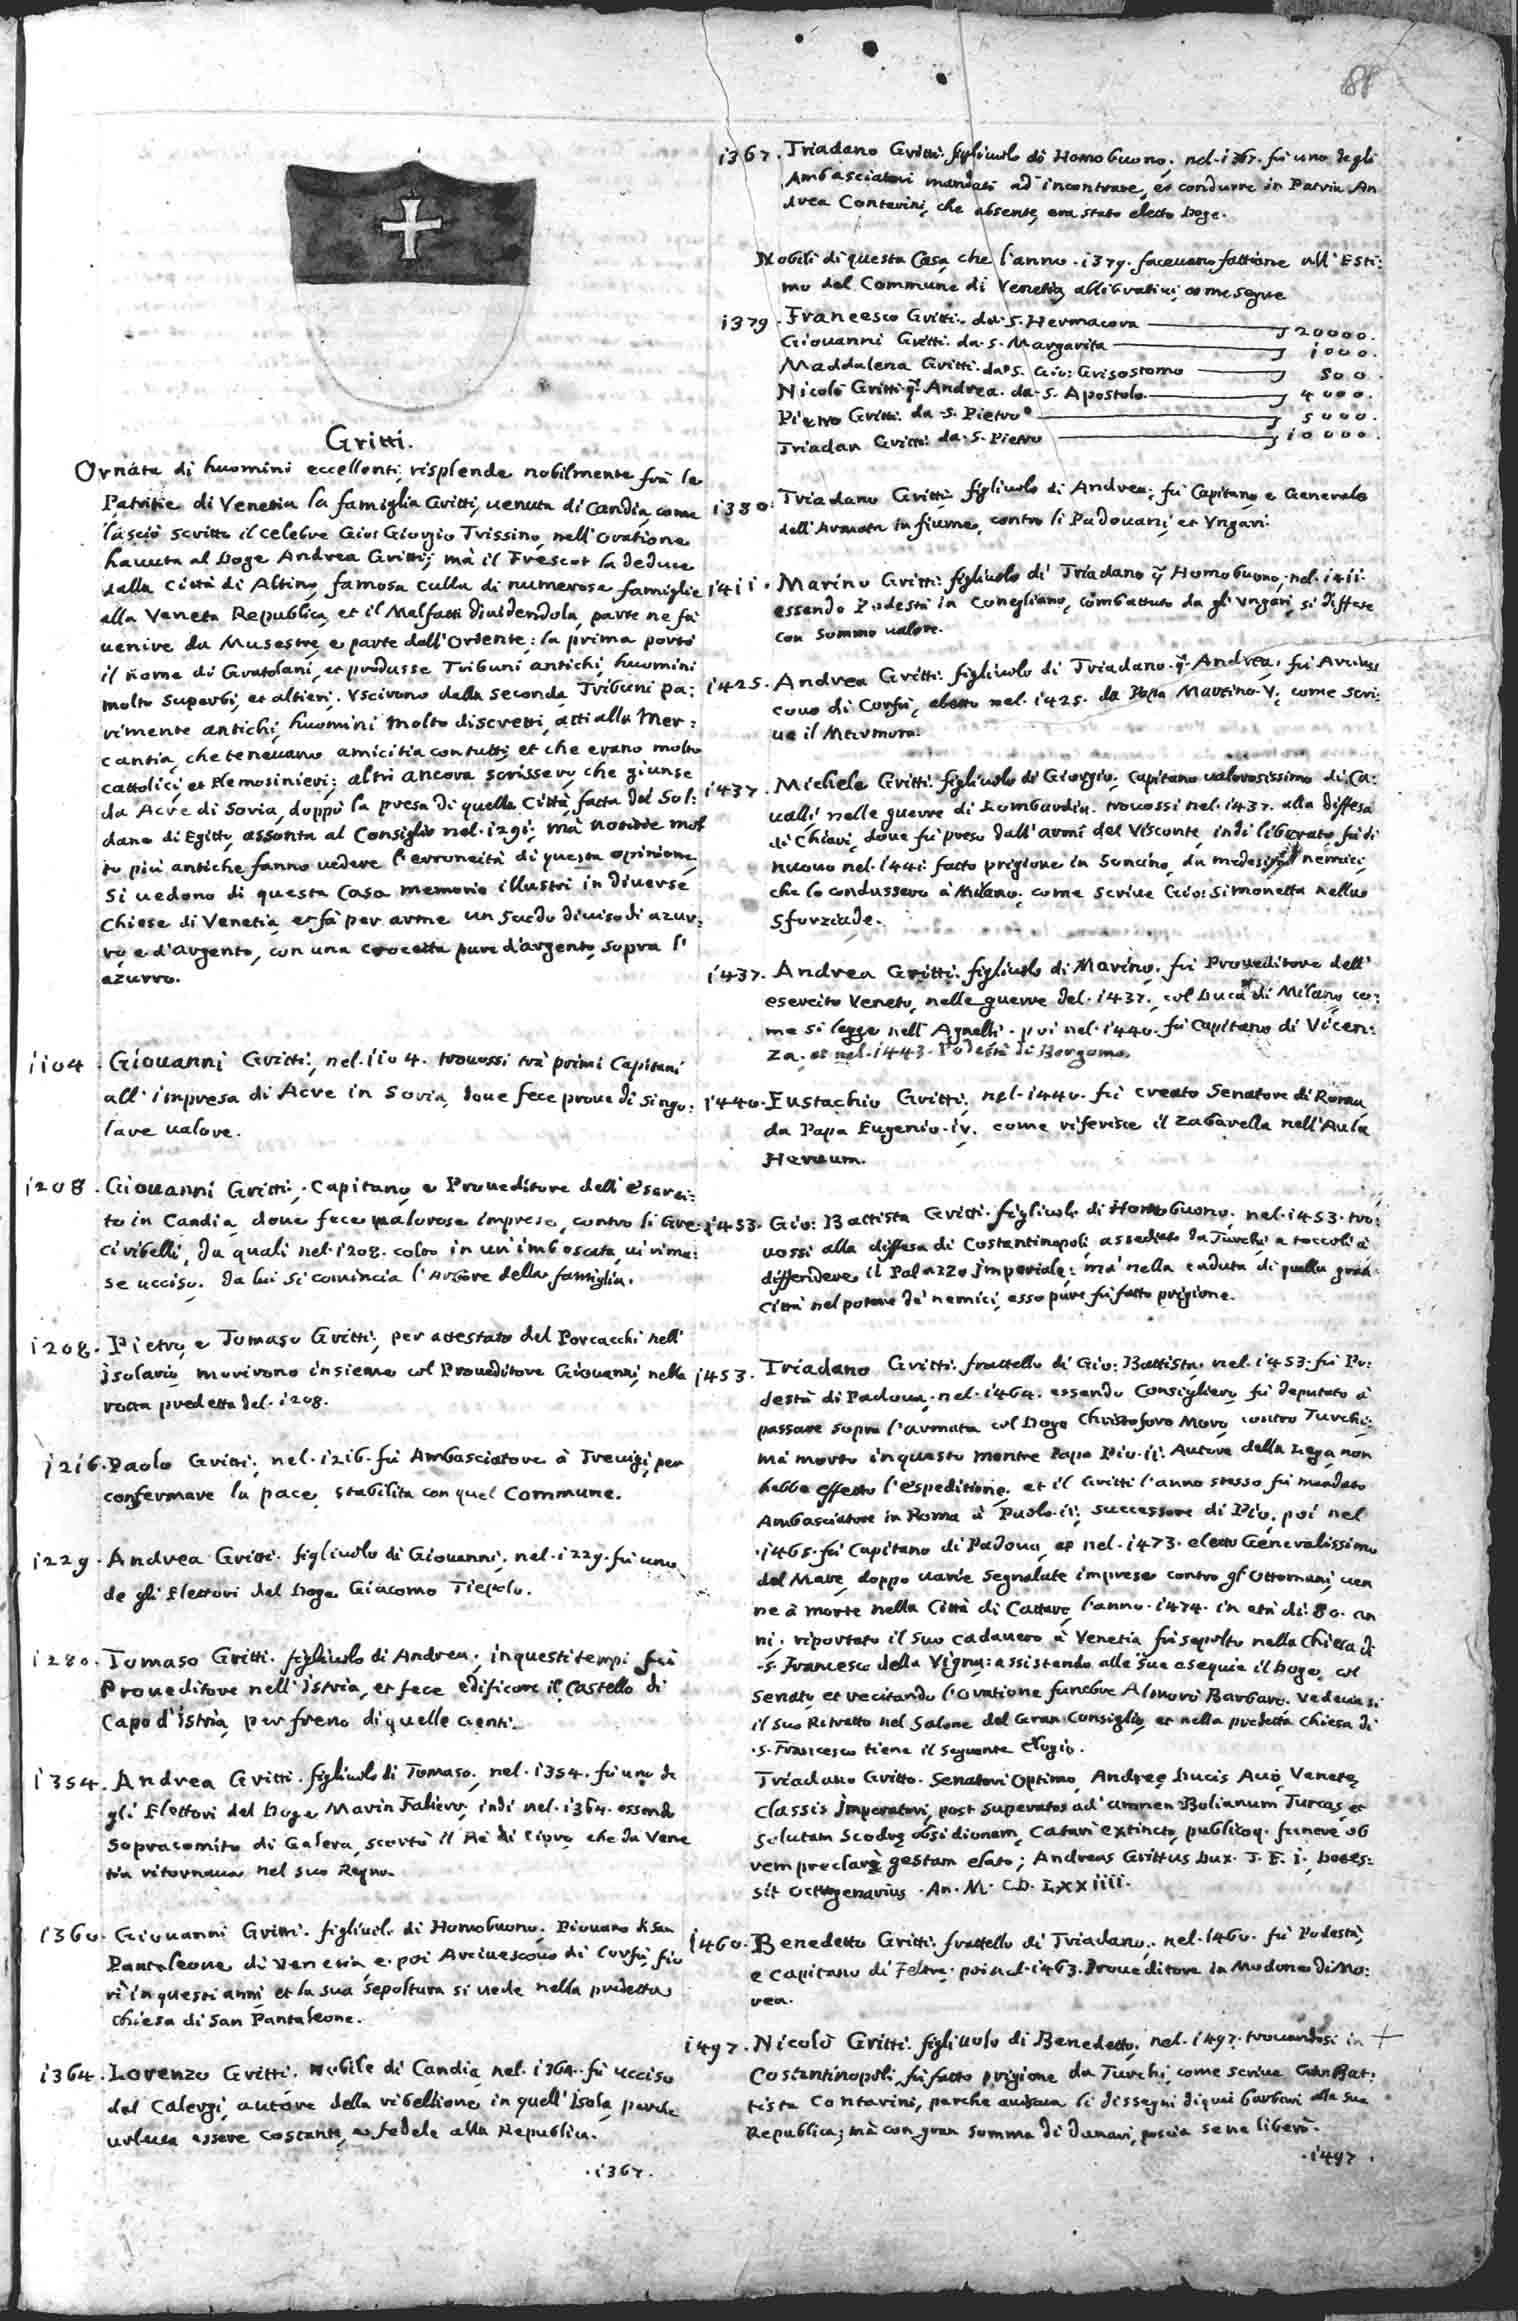 88
Gritti.
Ornata di huomini eccellenti, risplende nobilmente frà le
Patritie di Venetia la famiglia Gritti, uenuta di Candia, come
lasciò scritto il celebre Gio: Giorgio Trissino, nell'oratione
hauuta al Doge Andrea Gritti; mà il Frescot la deduce
dalla Città di Altino, famosa culla di numerose famiglie
alla Veneta Republica, et il Malfatti diuidendola, parte ne fà
uenire da Musestre, e parte dall'Oriente: la prima portò
il nome di Gratolani, et produsse Tribuni antichi, huomini
molto superbi, et altieri. Vscirono dalla seconda Tribuni pa:
rimente antichi, huomini molto discretti, atti alla Mer:
cantia, che teneuano amicitia con tutti, et che erano molto
cattolici, et Elemosinieri: altri ancora scrissero, che giunse
da Acre di Soria, doppò la presa di quella Città, fatta dal Sol:
dano di Egitto, assonta al Consiglio nel 1291; mà notitie mol
to più antiche fanno uedere l'erroneità di questa opinione,
Si uedono di questa Casa memorie illustri in diuerse
Chiese di Venetia, et fà per arme un Scudo diuiso di azur:
ro, e d'argento, con una crocetta pure d'argento, sopra l'
azurro.
1104 . Giouanni Gritti, nel. 1104. trouossi trà primi Capitani
all'impresa di Acre in Soria, doue fece proue di singo:
lare ualore.
1208 . Giouanni Gritti, Capitano, e Proueditore dell'eserci:
to in Candia, doue fece ualorose imprese, contro li Gre
ci ribelli, da quali nel. 1208. colto in un'imboscata, ui rima:
se ucciso. da lui si comincia l'Arbore della famiglia.
1208. Pietro, e Tomaso Gritti, per attestato del Porcacchi nell'
isolario, morirono insieme col Proueditore Giouanni, nella
rotta predetta del. 1208.
1216. Paolo Gritti, nel. 1216. fù Ambasciatore à Treuigi, per
confermare la pace, stabilita con quel Commune.
1229 . Andrea Gritti. figliuolo di Giouanni, nel. 1229. fù uno
de gli Elettori del Doge Giacomo Tiepolo.
1280. Tomaso Gritti. figliuolo di Andrea, in questi tempi fù
Proueditore nell'istria, et fece edificare il Castello di
Capo d'istria, per freno di quelle Genti.
1354. Andrea Gritti. figliuolo di Tomaso, nel. 1354. fù uno de
gli Elettori del Doge Marin Faliero, indi nel. 1364. essendo
Sopracomito di Galera, scortò il Rè di Cipro, che da Vene
tia ritornaua nel suo Regno.
1360. Giouanni Gritti. figliuolo di Homobuono, Piouano di San
Pantaleone di Venetia e poi Arciuescouo di Corfù, fio
rì in questi anni, et la sua sepoltura si uede nella predetta
chiesa di San Pantaleone.
1364. Lorenzo Gritti. Nobile di Candia, nel. 1364. fù ucciso
dal Calergi, autore della ribellione in quell'Isola, perche
uoleua essere costante, e fedele alla Republica.
. 1367.
1367. Triadano Gritti. figliuolo di Homobuono, nel. 1367. fù uno degli
Ambasciatori mandati ad incontrare, et condurre in Patria An
drea Contarini, che absente, era stato eletto Doge.
Nobili di questa Casa che l'anno. 1379. faceuano fattione all'Esti:
mo del Commune di Venetia,
come segue
1379 . Francesco Gritti. da. S. Hermacora 20000.
Giouanni Gritti. da. S. Margarita 1000.
Maddalena Gritti. da. S. Gio: Grisostomo 500.
Nicolò Gritti. q. Andrea. da. S. Apostolo. 4000.
Pietro Gritti. da. S. Pietro 5000.
Triadan Gritti. da. S. Pietro 10000.
1380. Triadano Gritti. figliuolo di Andrea, fù Capitano, e Generale
dell'Armata in fiume, contro li Padouani, et Vngari.
1411 . Marino Gritti. figliuolo di Triadano q. Homobuono, nel. 1411.
essendo Podestà in Conegliano, combattuto da gli Vngari, si diffese
con sommo ualore.
1425. Andrea Gritti. figliuolo di Triadano. q. Andrea, fù Arciues
couo di Corfù, eletto nel. 1425. da Papa Martino. V. come scri:
ue il Marmora.
1437. Michele Gritti. figliuolo di Giorgio, Capitano ualorosissimo di Ca:
ualli nelle guerre di Lombardia. trouossi nel. 1437. alla diffesa
di Chiari, doue fù preso dall'armi del Visconte, indi liberato, fù di
nuouo nel. 1441. fatto prigione in Soncino, da medesimi nemici,
che lo condussero à Milano, come scriue Gio: Simonetta nella
Sforziade.
1437. Andrea Gritti. figliuolo di Marino, fù Proueditore dell'
esercito Veneto, nelle guerre del. 1437. col Duca di Milano co:
me si legge nell'Agnelli. poi nel. 1440. fù Capitano di Vicen:
za, et nel. 1443. Podestà di Bergamo.
1440. Eustachio Gritti, nel. 1440. fù creato Senatore di Roma
da Papa Eugenio. IV. come riferisce il Zabarella nell'Aula
Heroum.
1453. Gio: Battista Gritti. figliuolo di Homobuono, nel. 1453. tro:
uossi alla diffesa di Costantinopoli, assediato da Turchi, e toccoli à
diffendere il Palazzo Imperiale: mà nella caduta di quella gran
Città nel potere de' nemici, esso pure fù fatto prigione.
1453. Triadano Gritti. frattello di Gio: Battista, nel. 1453. fù Po:
destà di Padoua, nel. 1464. essendo Consigliero, fù deputato à
passare sopra l'armata col Doge Christoforo Moro contro Turchi,
mà morto in questo mentre Papa Pio. II. Autore della Lega, non
hebbe effetto l'espeditione, et il Gritti l'anno stesso fù mandato
Ambasciatore in Roma à Paolo. II. successore di Pio, poi nel
. 1465. fù Capitano di Padoua, et nel. 1473. eletto Generalissimo
del Mare, doppo uarie segnalate imprese contro gl'Ottomani, uen
ne à morte nella Città di Cattaro, l'anno. 1474. in età di. 80. an
ni. riportato il suo cadauero à Venetia, fù sepolto nella Chiesa di
. S. Francesco della Vigna: assistendo alle sue esequie il Doge, col
Senato, et recitando l'oratione funebre Almorò Barbaro. Vedeuasi
il suo Ritratto nel Salone del Gran Consiglio, et nella predetta Chiesa di
. S. Francesco tiene il seguente elogio.
Triadano Gritto. Senatori Optimo, Andreę Ducis Auo, Venetę
Classis Imperatori, post superatos ad amnen Bolianum Turcas, et
solutam Scodrę obsidionem, Catari extincto, publicoq. funere ob
rem preclarè gestam elato; Andreas Grittus Dux. T. F. I. Deces:
sit octogenarius . An. M. CD. LXXIIII.
1460. Benedetto Gritti. frattello di Triadano, nel. 1460. fù Podestà,
e Capitano di Feltre, poi nel. 1463. Proueditore in Modone di Mo:
rea.
1497. Nicolò Gritti. figliuolo di Benedetto, nel. 1497. trouandosi in +
Costantinopoli, fù fatto prigione da Turchi, come scriue Gian Bat:
tista Contarini, perche auisaua li dissegni di quei barbari alla sua
Republica; mà con gran somma di danari, poscia se ne liberò.
. 1497 .